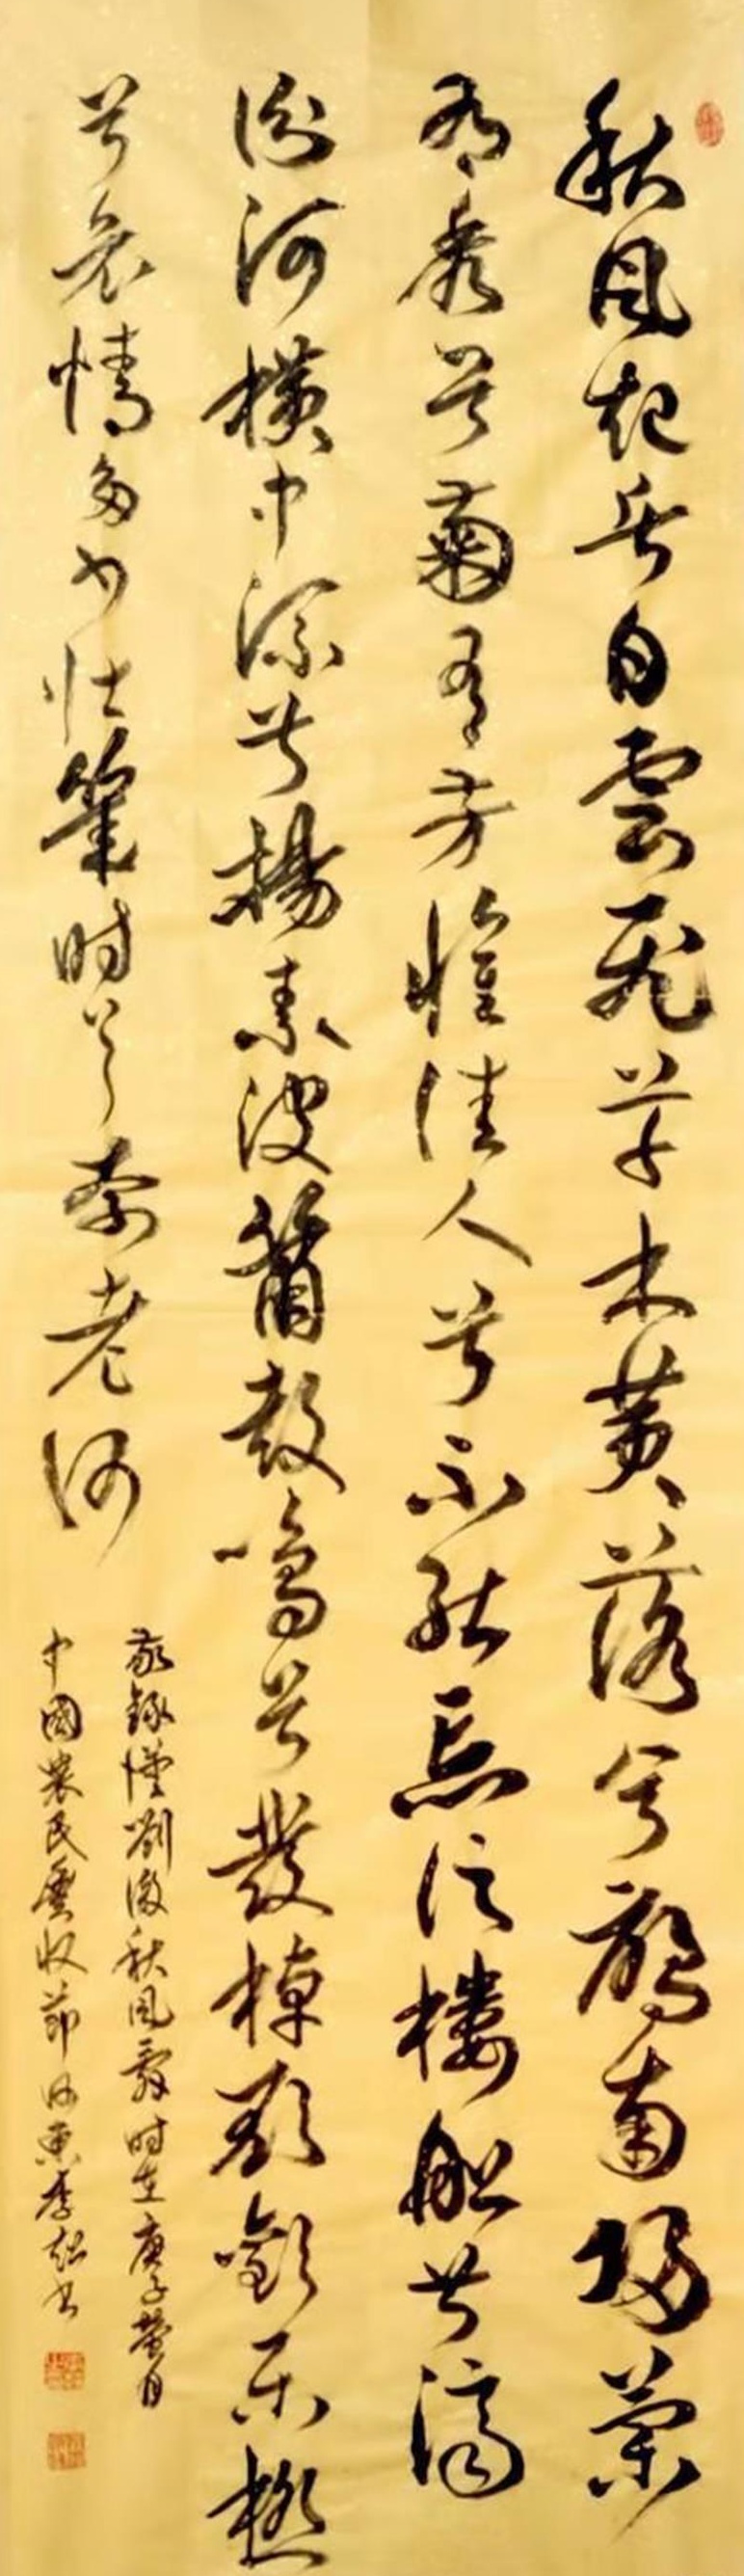 秋風起兮白雲飛草木黄落兮雁南歸蘭
有秀兮菊有芳懷佳人兮不能忘泛樓船兮濟
汾河橫中流兮揚素波簫鼓鳴兮發棹歌歡樂極
兮哀情多少壯幾時兮奈老何
敬錄漢劉徹秋風辭時在庚子月
中國農民豐收節河東李书